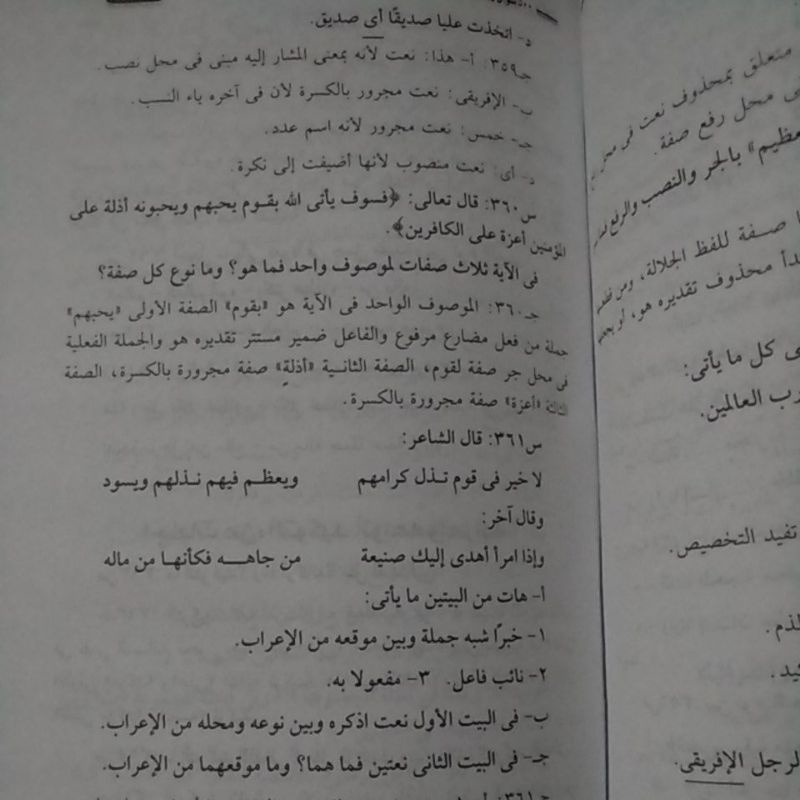 د- اتخذت عليا صديقًا أى صديق.
جـ٣٥٩: أ- هذا: نعت لأنه بمعنى المشار إليه مبنى فى محل نصب.
ب- الإفريقى: نعت مجرور بالكسرة لان فى آخره ياء النسب.
جـ- خمس: نعت مجرور لأنه اسم عدد.
د- أى: نعت منصوب لأنها أضيفت إلى نكرة.
س٣٦٠: قال تعالى: ﴿فسوف يأتى الله بقوم يحبهم ويحبونه أذلة على
المؤمنين أعزة على الكافرين﴾.
فى الآية ثلاث صفات لموصوف واحد فما هو؟ وما نوع كل صفة؟
جـ٣٦٠: الموصوف الواحد فى الآية هو «بقوم» الصفة الأولى «يحبهم»
جملة من فعل مضارع مرفوع والفاعل ضمير مستتر تقديره هو والجملة الفعلية
فى محل جر صفة لقوم، الصفة الثانية «أذلةٍ» صفة مجرورة بالكسرة، الصفة
الثالثة «أعزة» صفة مجرورة بالكسرة.
س٣٦١: قال الشاعر:
لا خير فى قوم تذل كرامهم ويعظم فيهم نذلهم ويسود
وقال آخر:
وإذا امرأ أهدى إليك صنيعة من جاهه فكأنها من ماله
أ- هات من البيتين ما يأتى:
١- خبرًا شبه جملة وبين موقعه من الإعراب.
٢- نائب فاعل. ٣- مفعولا به.
ب- فى البيت الأول نعت اذكره وبين نوعه ومحله من الإعراب.
جـ- فى البيت الثانى نعتين فما هما؟ وما موقعهما من الإعراب.
متعلق بمحذوف نعت فى
محل رفع صفة.
بالجر والنصب والرفع
صفة للفظ الجلالة، ومن
محذوف تقديره هو، أو
كل ما يأتى:
رب العالمين.
تفيد التخصيص.
للذم.
الرجل الإفريقى.